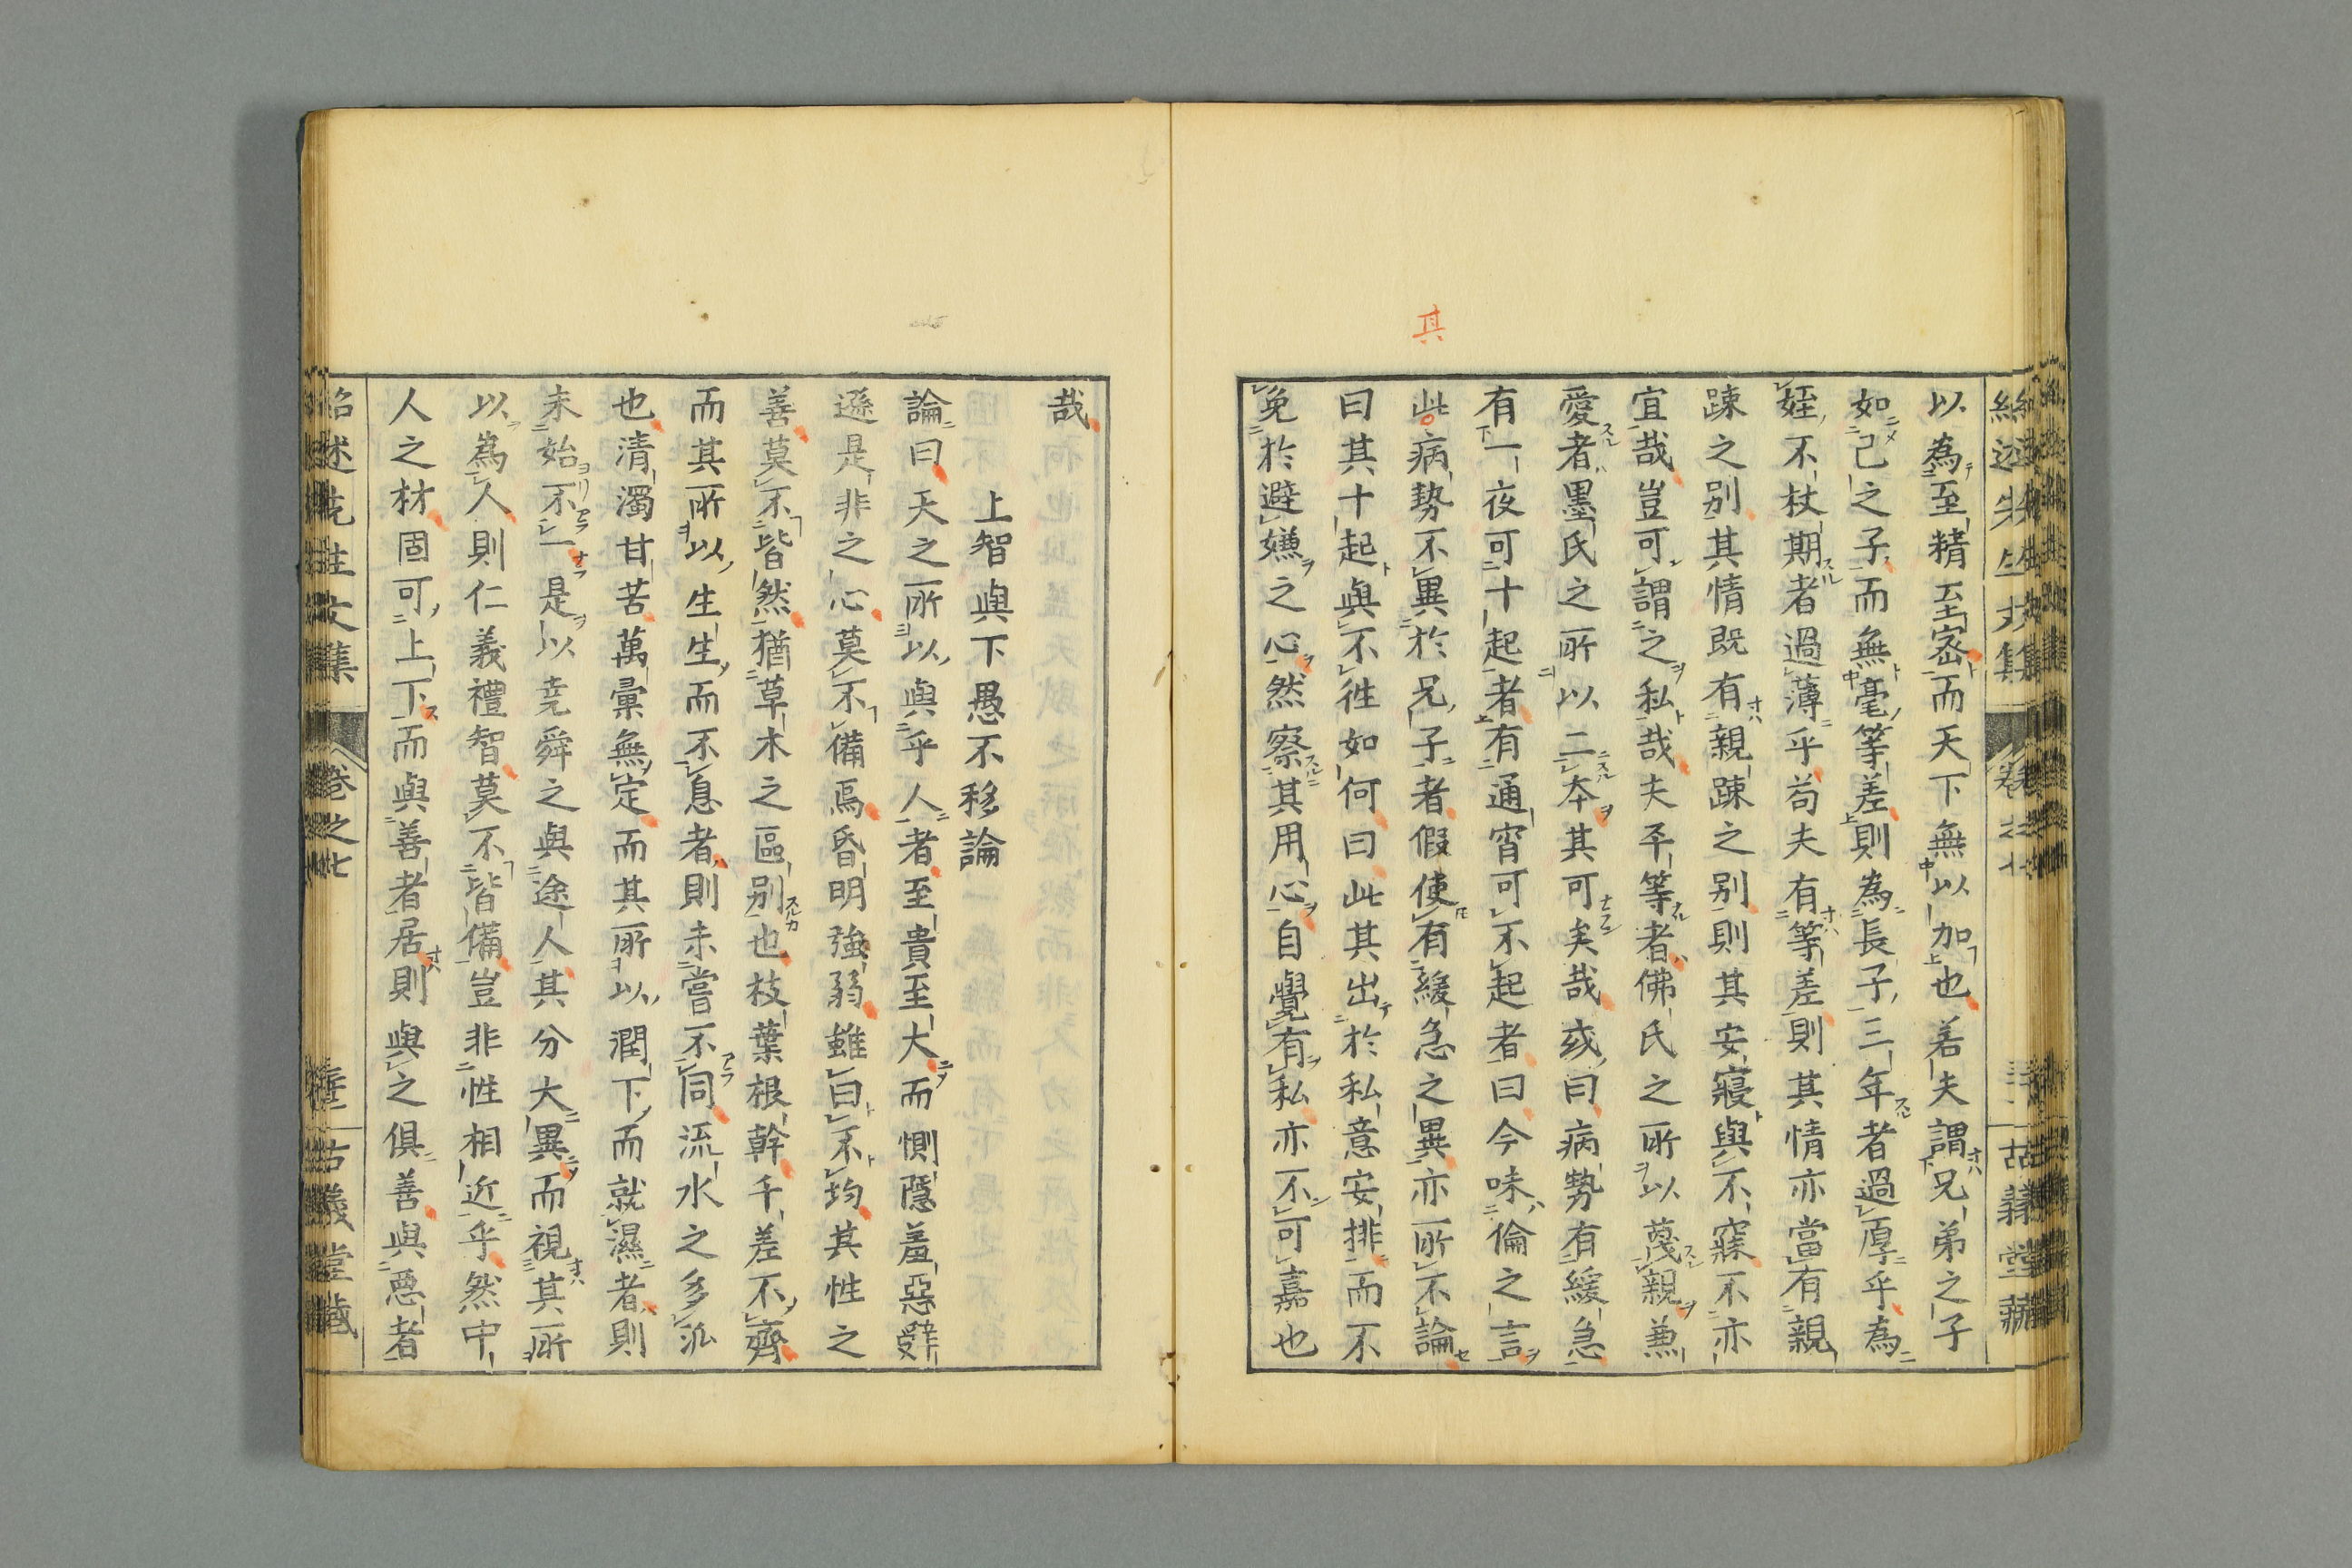 其
以為至精至密而天下無以加也若夫謂兄弟之子
如己之子而無毫等差則為長子三年者過厚乎為
姪不杖期者過薄乎苟夫有等差則其情亦當有親
踈之别其情既有親踈之别則其安寢與不寐不亦
宜哉豈可謂之私哉夫平等者佛氏之所以蔑親兼
愛者墨氏之所以二本其可矣哉或曰病勢有緩急
有一夜可十起者有通宵可不起者曰今味倫之言
此病勢不異於兄子者假使有緩急之異亦所不論
曰其十起與不徃如何曰此其出於私意安排而不
免於避嫌之心然察其用心自覺有私亦不可嘉也
哉
上智與下愚不移論
論曰天之所以與乎人者至貴至大而惻隱羞惡辤
遜是非之心莫不備焉昏明強弱雖曰不均其性之
善莫不皆然猶草木之區别也枝葉根幹千差不齊
而其所以生生而不息者則未嘗不同流水之多泒
也清濁甘苦萬彙無定而其所以潤下而就濕者則
未始不一是以堯舜之與途人其分大異而視其所
以為人則仁義禮智莫不皆備豈非性相近乎然中
人之材固可上下而與善者居則與之俱善與惡者
紹述先生文集 卷之七 古義堂藏